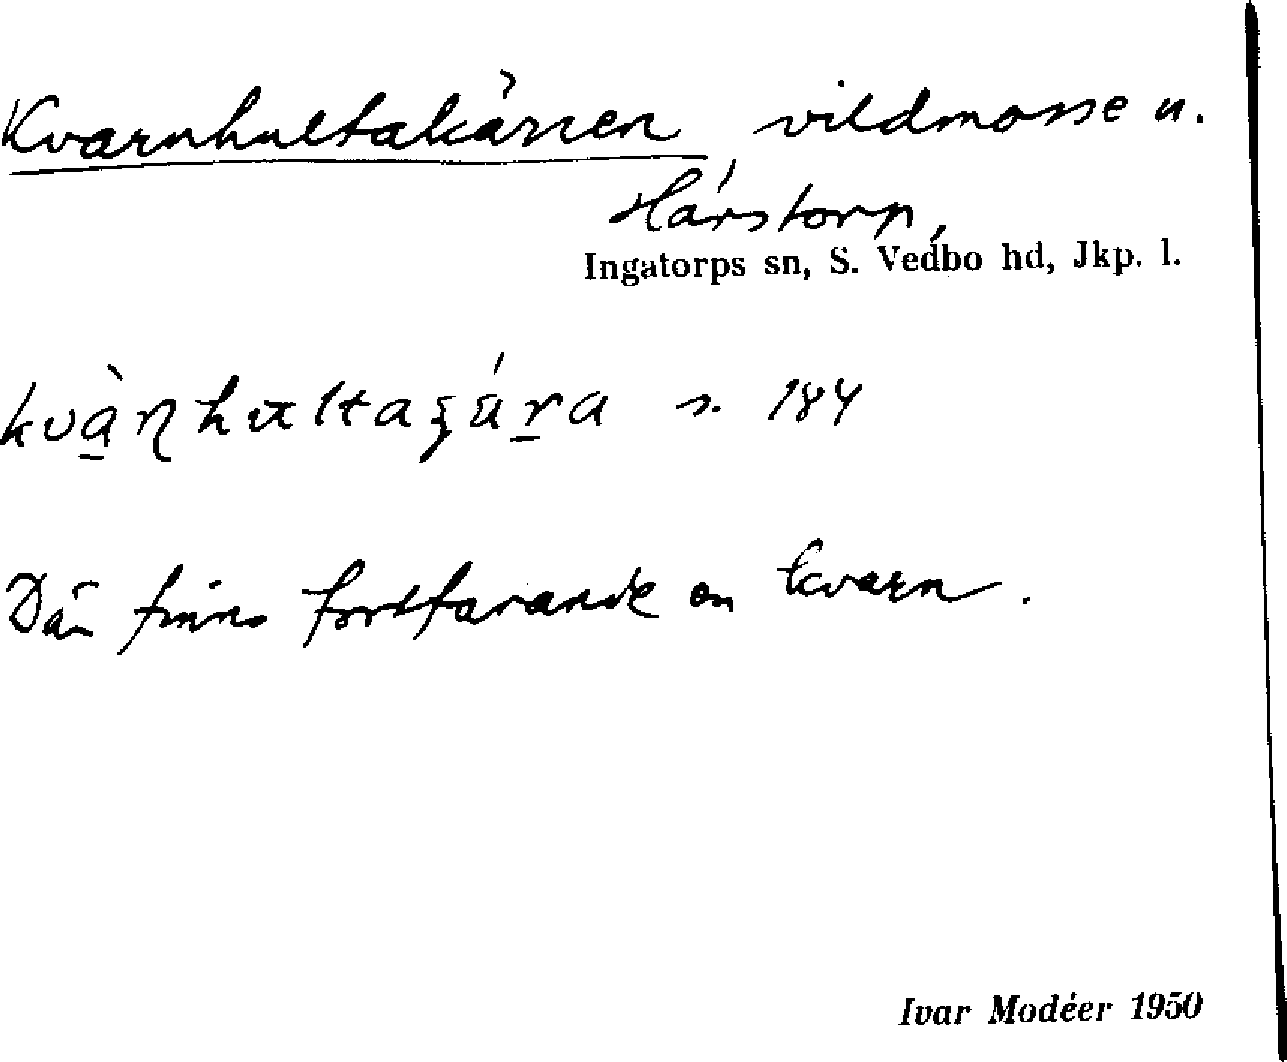 Kvarnhultakärren vildmosse u.
Hårstorp,
Ingatorps sn, S. Vedbo hd, Jkp. l.
s. 184
Där finns fortfarande en kvarn.
Ivar Modéer 1950